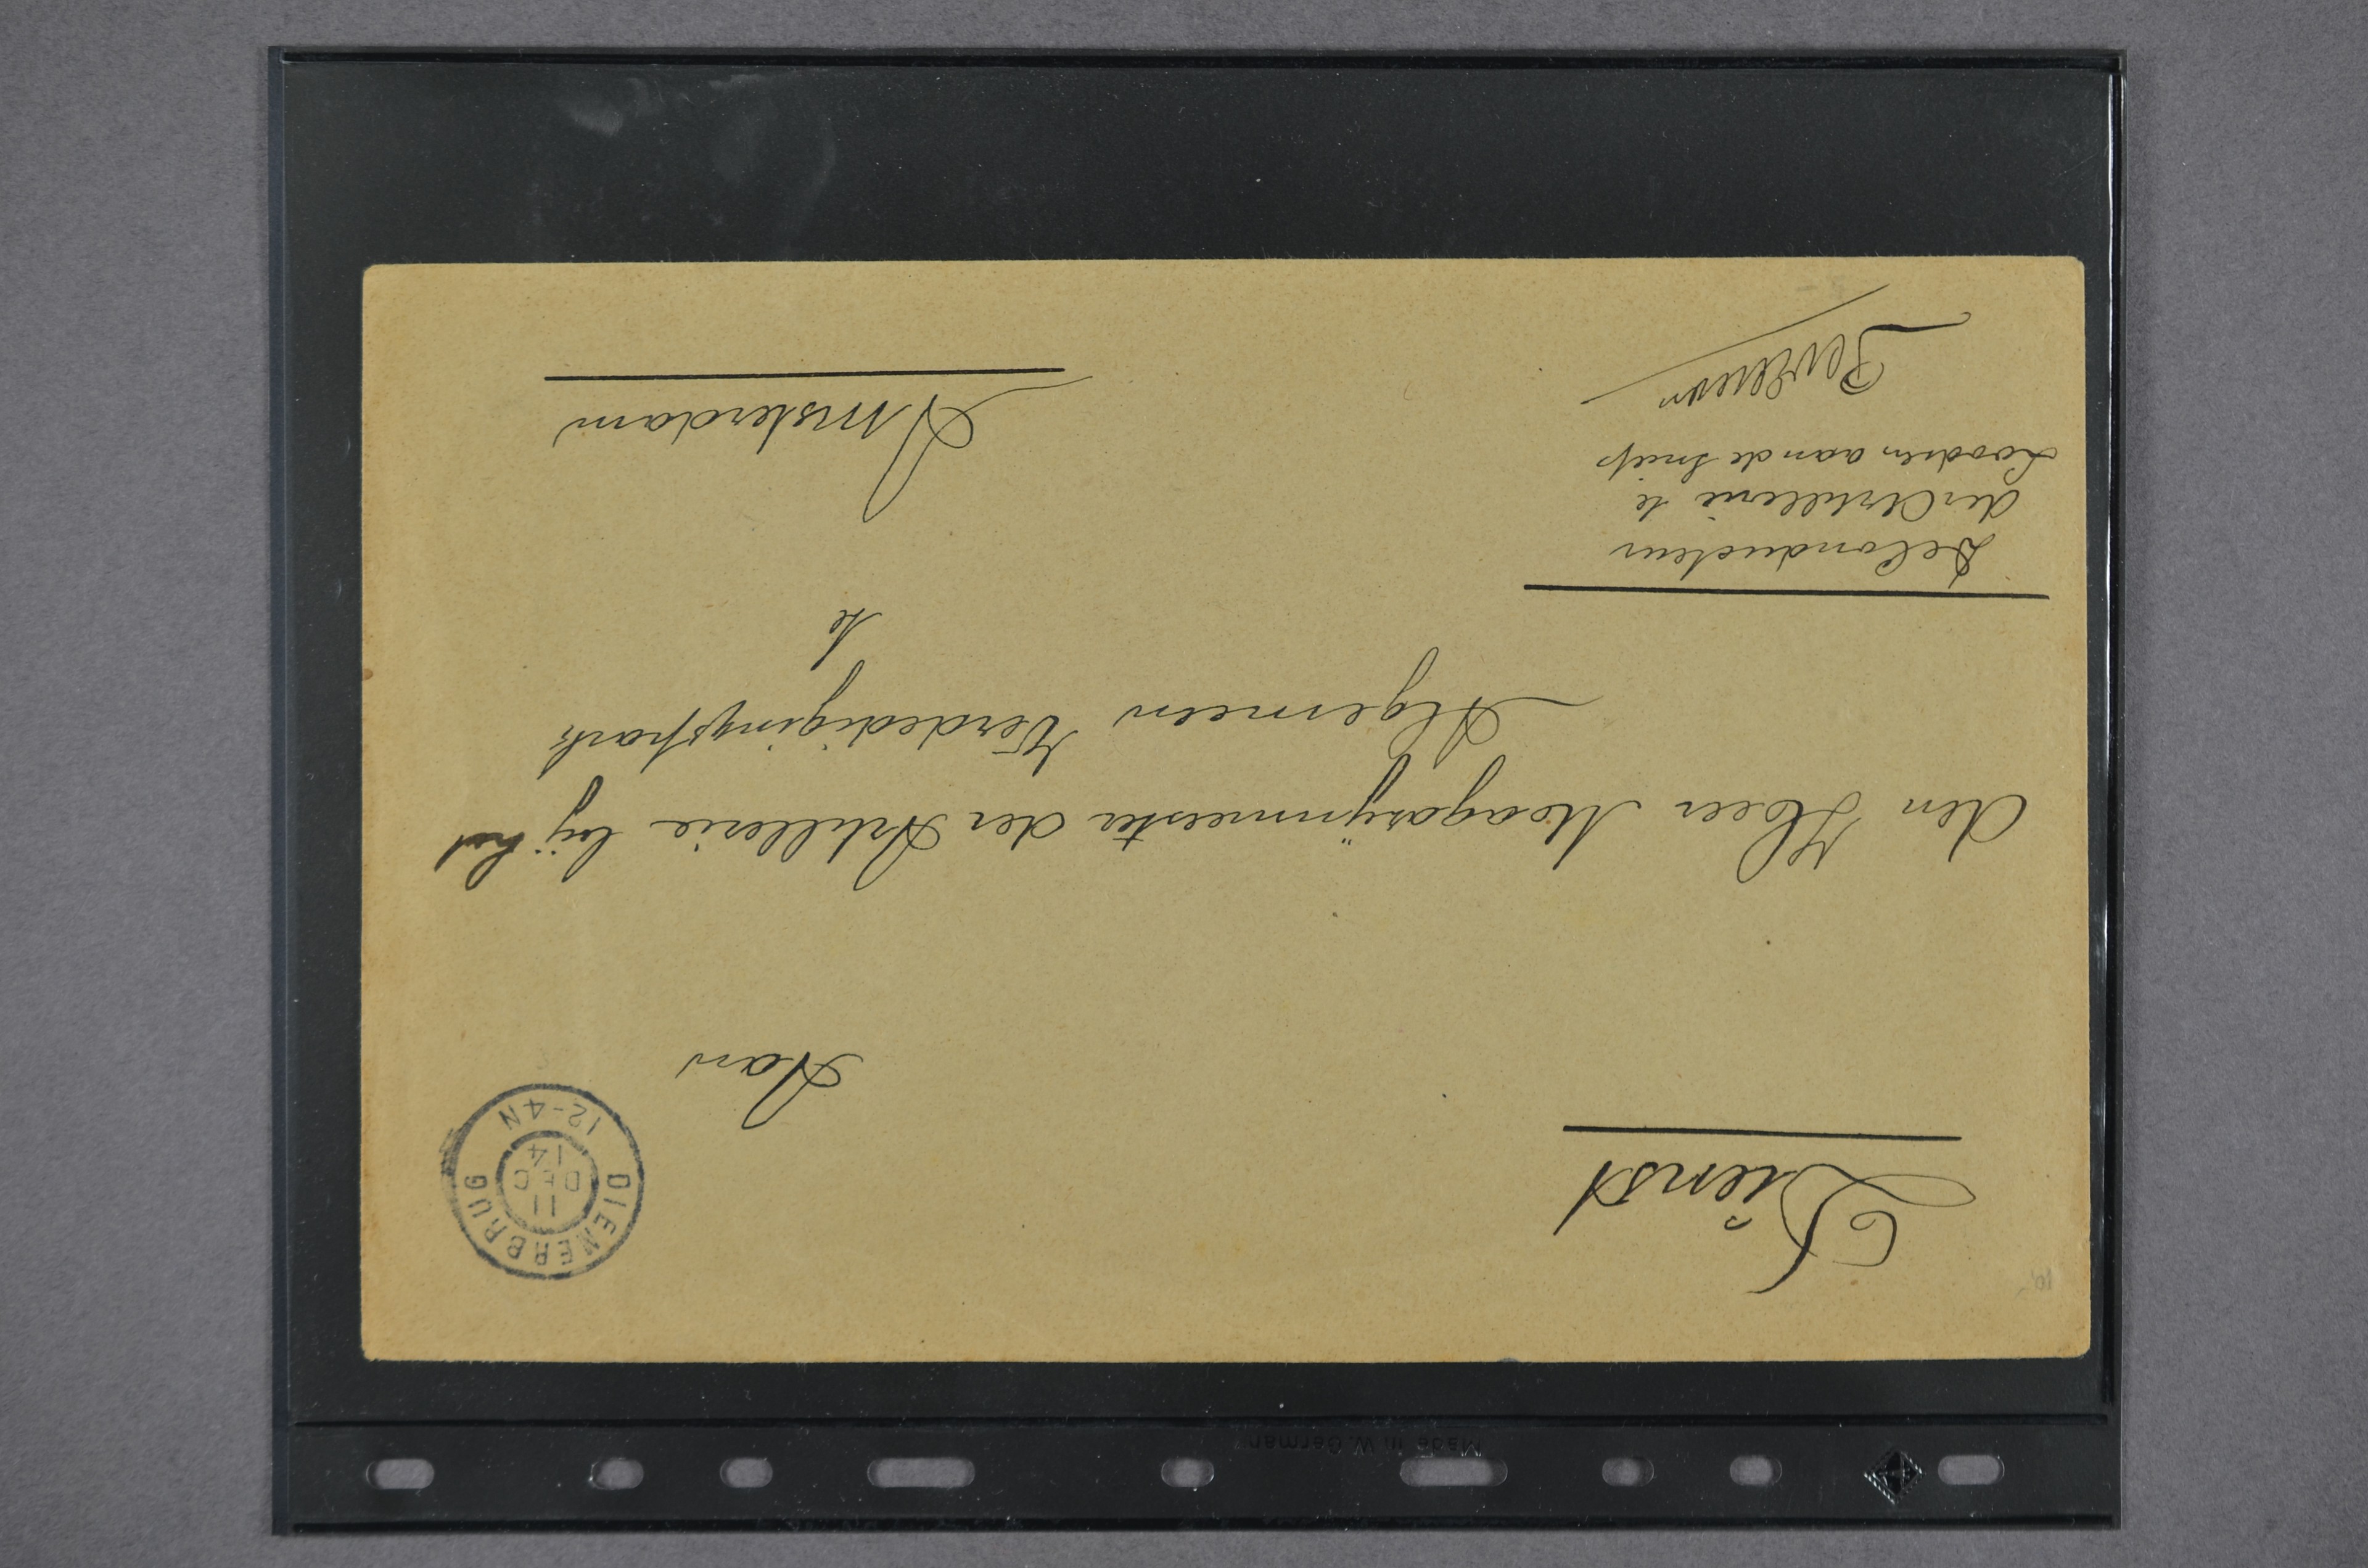 Dienst
DIEMERBRUG
11
DEC
14
12-4N
Aan
den Heer Magazijnmeester der Artillerie bij het
Algemeen Verdedigingspark
te
Amsterdam
De Conducteur
der Artillerie te
Loodsen aan de Sniep
Made in W. Germany